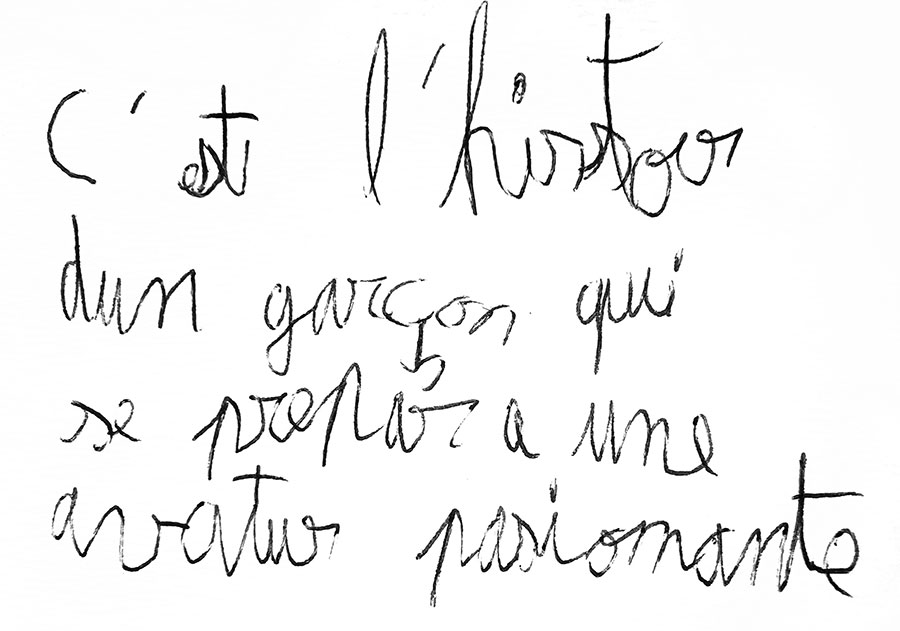 C'est l'histoir
dun garçon qui
se prepar a une
avatur pasiomante